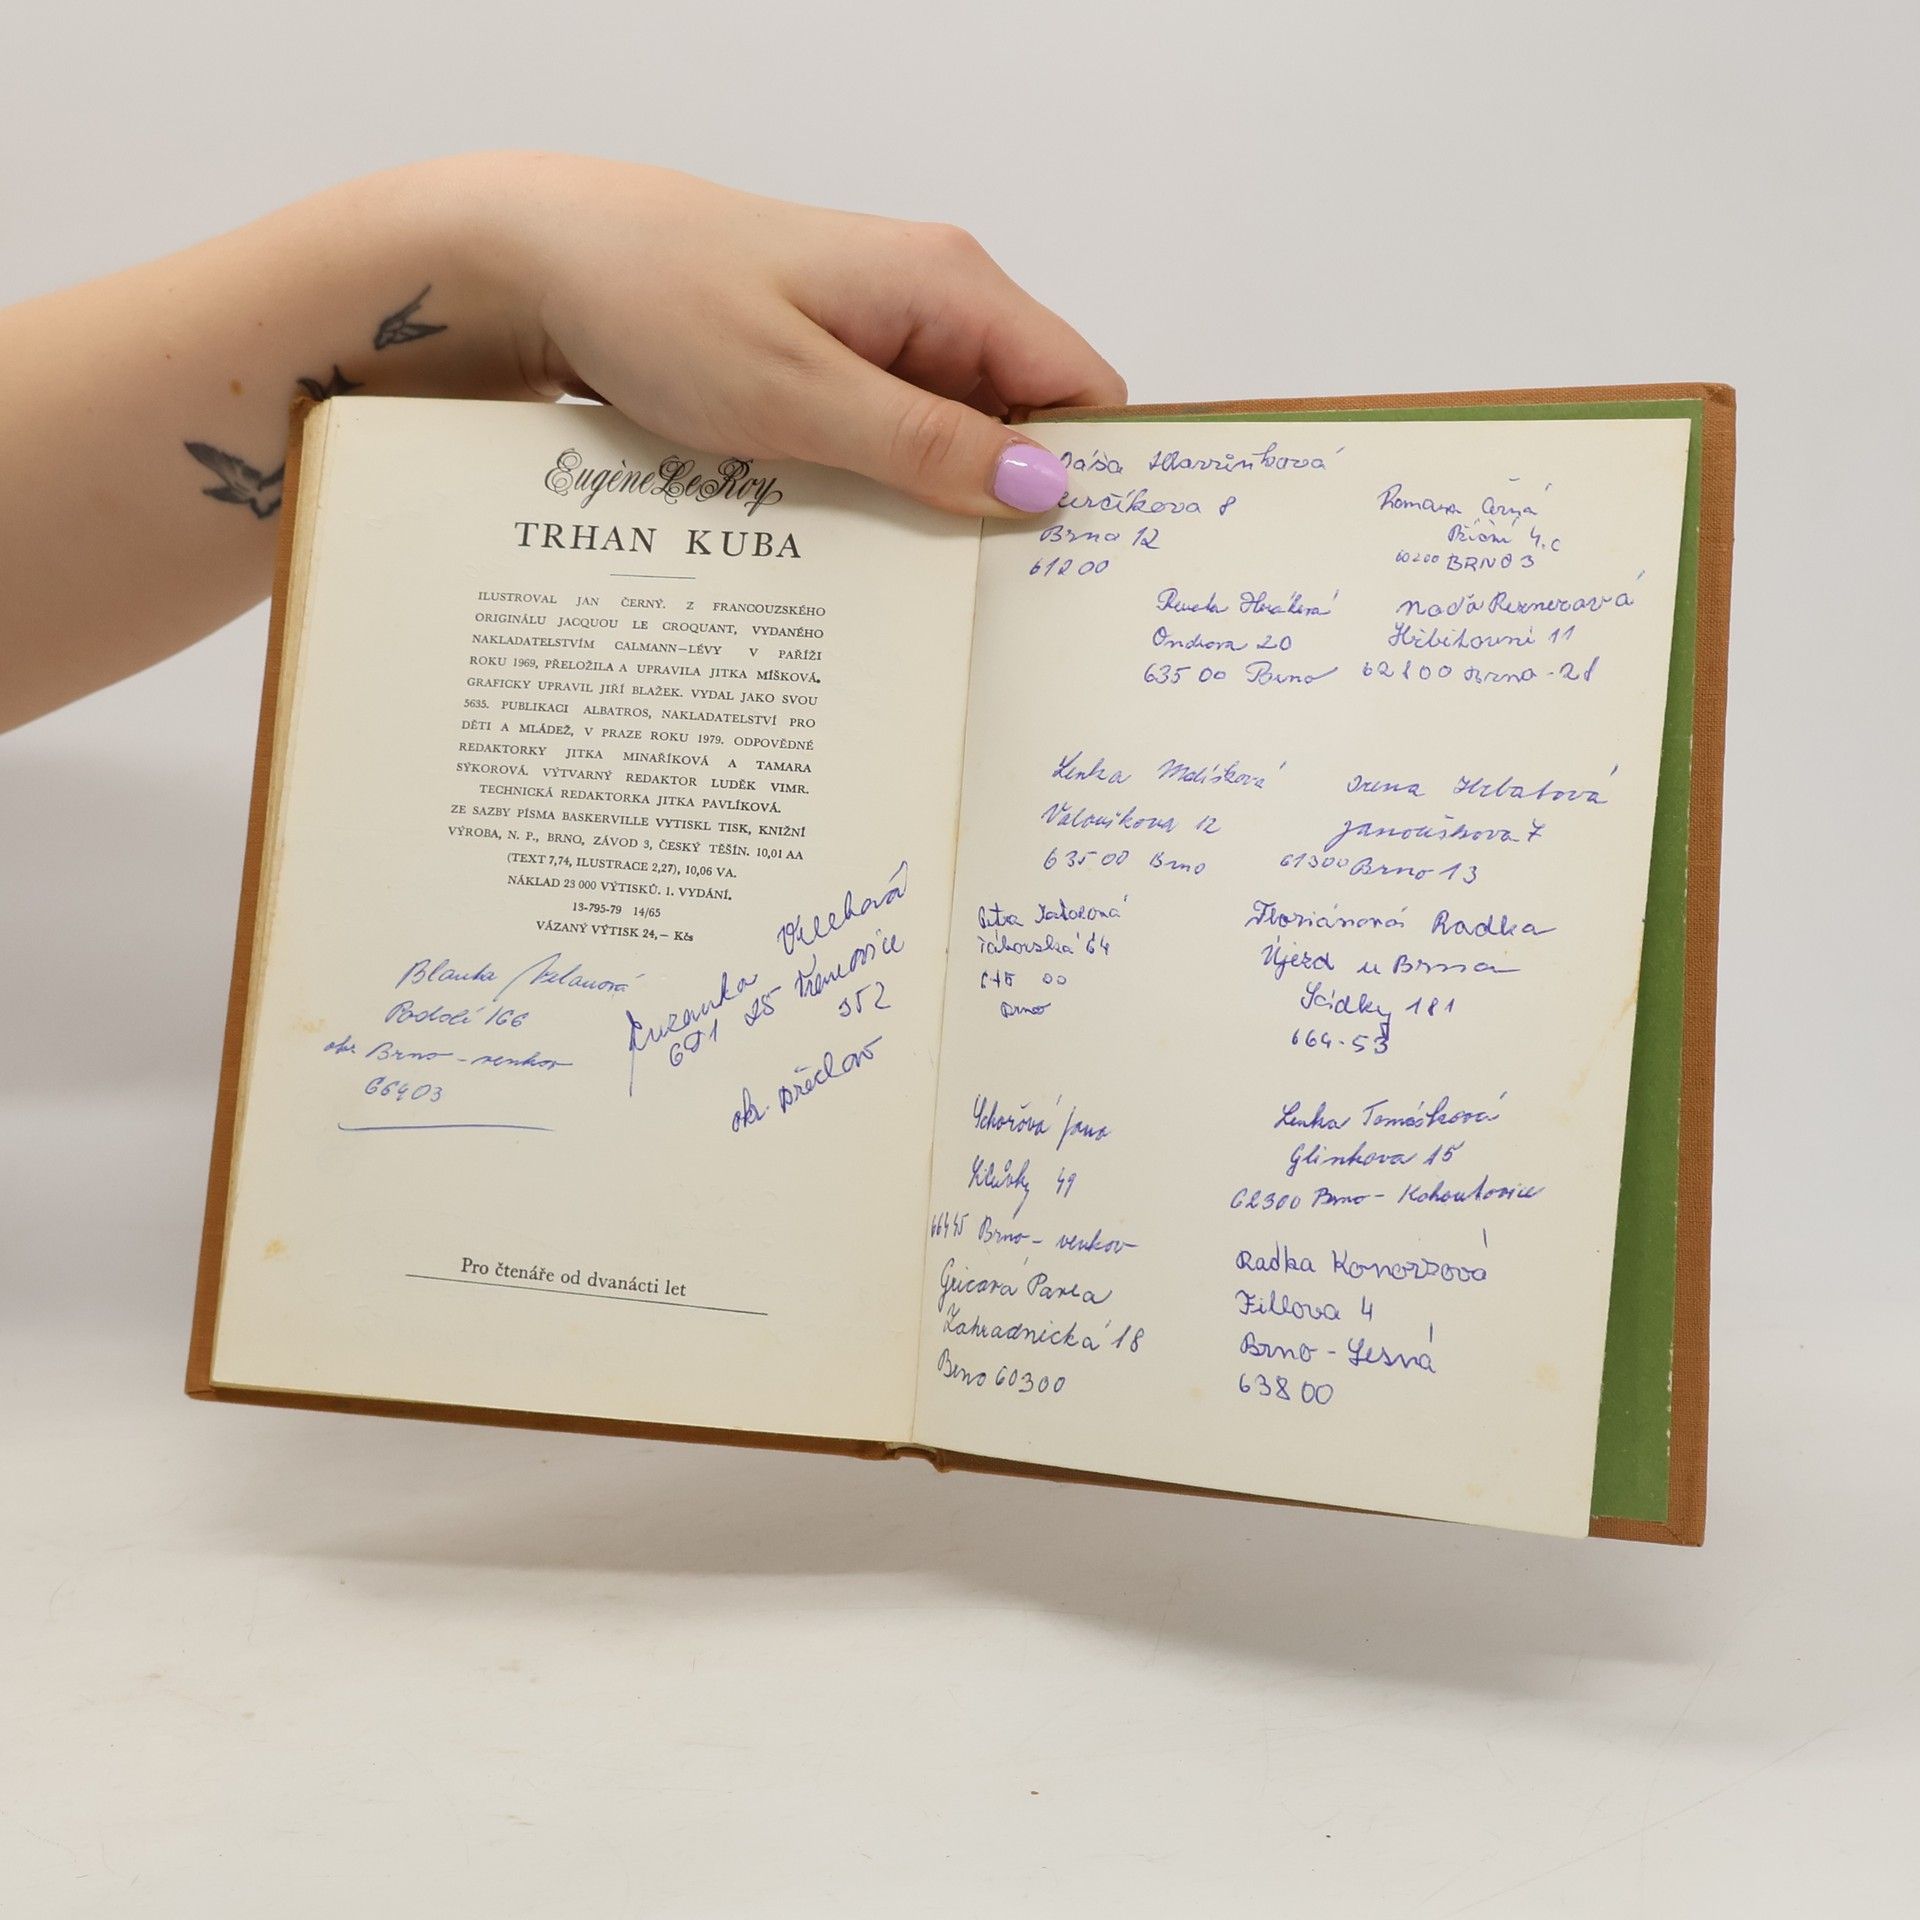 Eugène Le Roy
TRHAN KUBA
ILUSTROVAL JAN ČERNÝ. Z FRANCOUZSKÉHO
ORIGINÁLU JACQUOU LE CROQUANT, VYDANÉHO
NAKLADATELSTVÍM CALMANN–LÉVY V PAŘÍŽI
ROKU 1969, PŘELOŽILA A UPRAVILA JITKA MÍŠKOVÁ.
GRAFICKY UPRAVIL JIŘÍ BLAŽEK. VYDAL JAKO SVOU
5635. PUBLIKACI ALBATROS, NAKLADATELSTVÍ PRO
DĚTI A MLÁDEŽ, V PRAZE ROKU 1979. ODPOVĚDNÉ
REDAKTORKY JITKA MINAŘÍKOVÁ A TAMARA
SÝKOROVÁ. VÝTVARNÝ REDAKTOR LUDĚK VIMR.
TECHNICKÁ REDAKTORKA JITKA PAVLÍKOVÁ.
ZE SAZBY PÍSMA BASKERVILLE VYTISKL TISK, KNIŽNÍ
VÝROBA, N. P., BRNO, ZÁVOD 3, ČESKÝ TĚŠÍN. 10,01 AA
(TEXT 7,74, ILUSTRACE 2,27), 10,06 VA.
NÁKLAD 23 000 VÝTISKŮ. 1. VYDÁNÍ.
13-795-79 14/65
VÁZANÝ VÝTISK 24,– Kčs
Blanka
Podolí 166
okr. Brno - venkov
66403
Zuzanka
691 25
352
okr. Břeclav
Pro čtenáře od dvanácti let
Brno 12
612 00
Romana Černá
Příční 4.c
60200 BRNO 3
Renata
Ondrova 20
635 00 Brno
Naďa
Hřbitovní 11
Lenka
Valouškova 12
635 00 Brno
Irena Hrbatová
Janouškova 7
61300 Brno 13
Petra
Táborská 64
00
Brno
Floriánová Radka
Újezd u Brna
Sídky 181
664-53
Jana
Silůvky 49
Brno - venkov
Lenka Tomášková
Glinkova 15
62300 Brno - Kohoutovice
Pavla
Zahradnická 18
Brno 60300
Radka
Fillova 4
Brno - Lesná
638 00